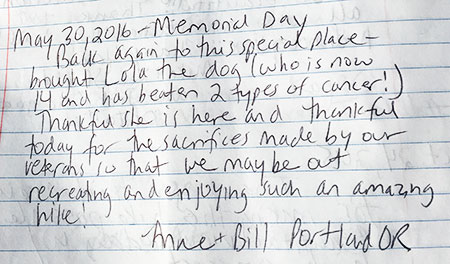 May 30, 2016 - Memorial Day
Back again to this special place -
brought Lola the dog (who is now
14 and has beaten 2 types of cancer!)
Thankful she is here and thankful
today for the sacrifices made by our
veterans so that we may be out
recreating and enjoying such an amazing
hike!
Anne + Bill Portland OR